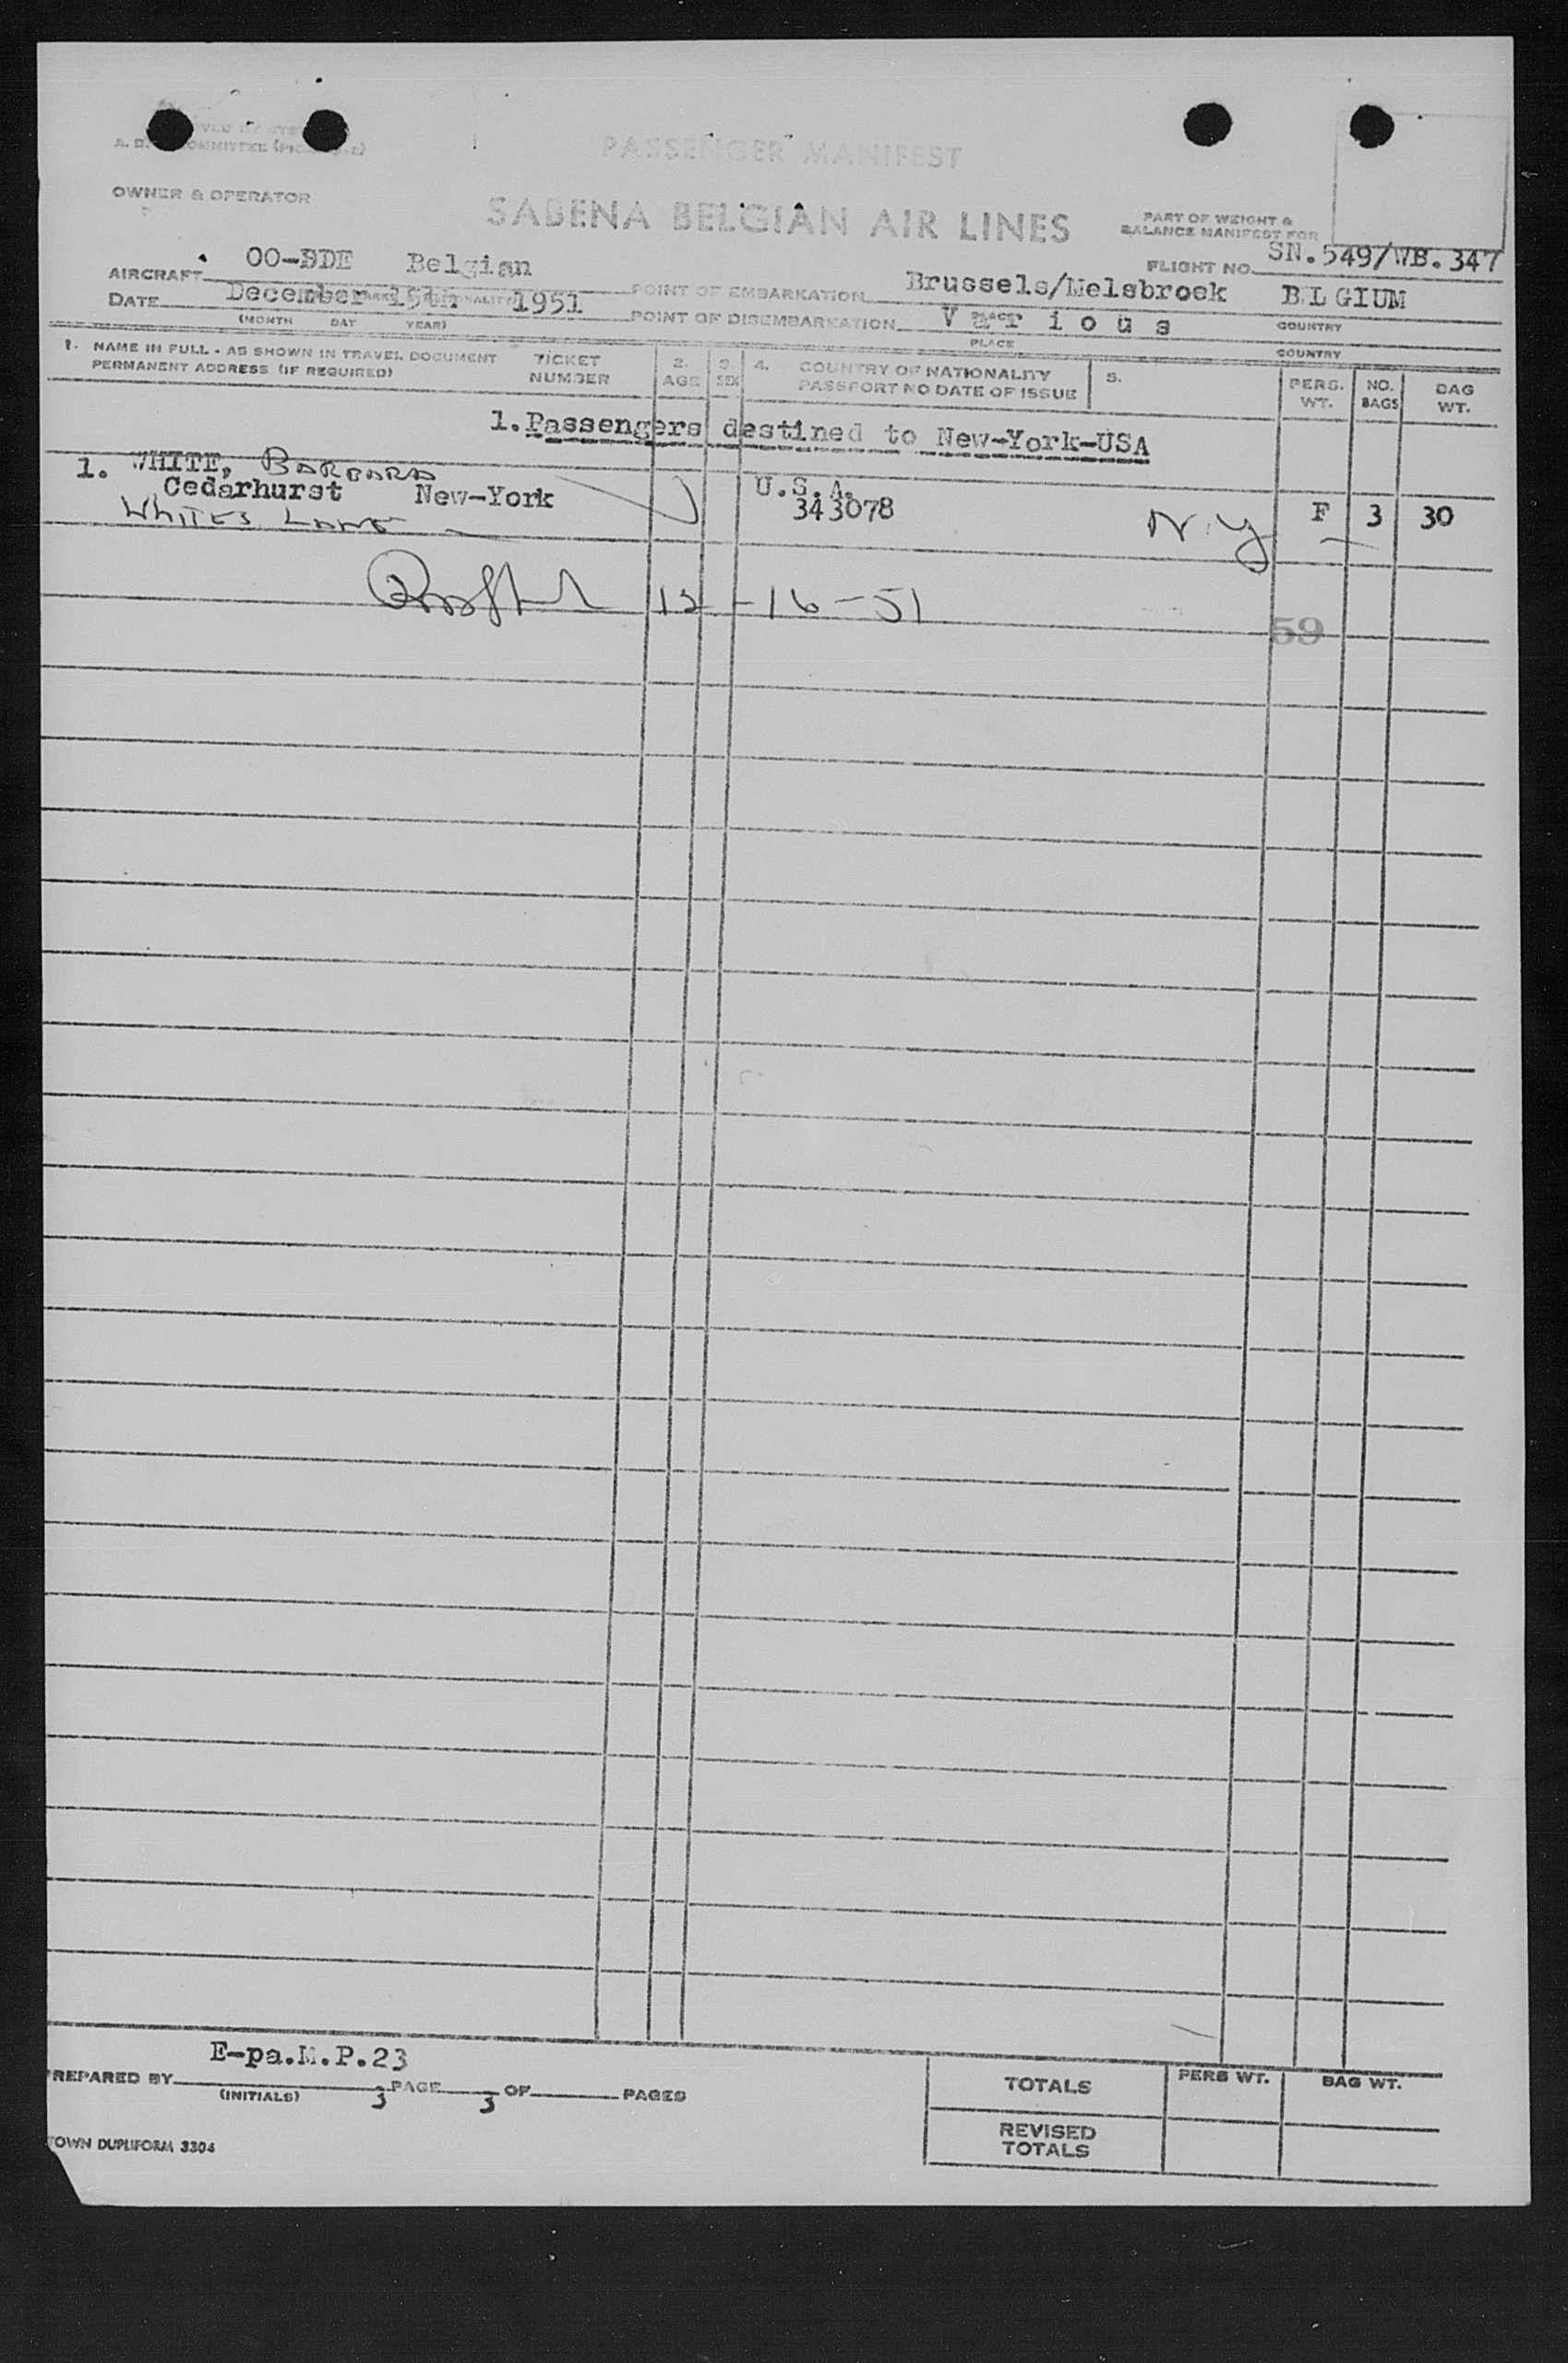 PASSENGER MANIFEST
OWNER & OPERATOR
SABENA BELGIAN AIR LINES
PART OF WEIGHT &
BALANCE MANIFEST FOR
AIRCRAFT OO-BDE Belgian
FLIGHT NO. SN.549/WB.347
POINT OF EMBARKATION Brussels/Melsbroek BELGIUM
DATE December 1951
(MONTH DAY YEAR)
PLACE COUNTRY
POINT OF DISEMBARKATION V a r i o u s
PLACE COUNTRY
1. NAME IN FULL - AS SHOWN IN TRAVEL DOCUMENT
PERMANENT ADDRESS (IF REQUIRED)
TICKET
NUMBER
2.
AGE
3.
SEX
4. COUNTRY OF NATIONALITY
PASSPORT NO DATE OF ISSUE
5.
PERS.
WT.
NO.
BAGS
BAG
WT.
1.Passengers destined to New-York-USA
1. WHITE, BARBARA
Cedarhurst New-York
WHITES LANE
U.S.A.
343078
N.Y F 3 30
12-16-51
59
E-pa.M.P.23
PREPARED BY
(INITIALS)
3 PAGE 3 OF PAGES
TOTALS PERS WT. BAG WT.
REVISED
TOTALS
TOWN DUPLIFORM 3304